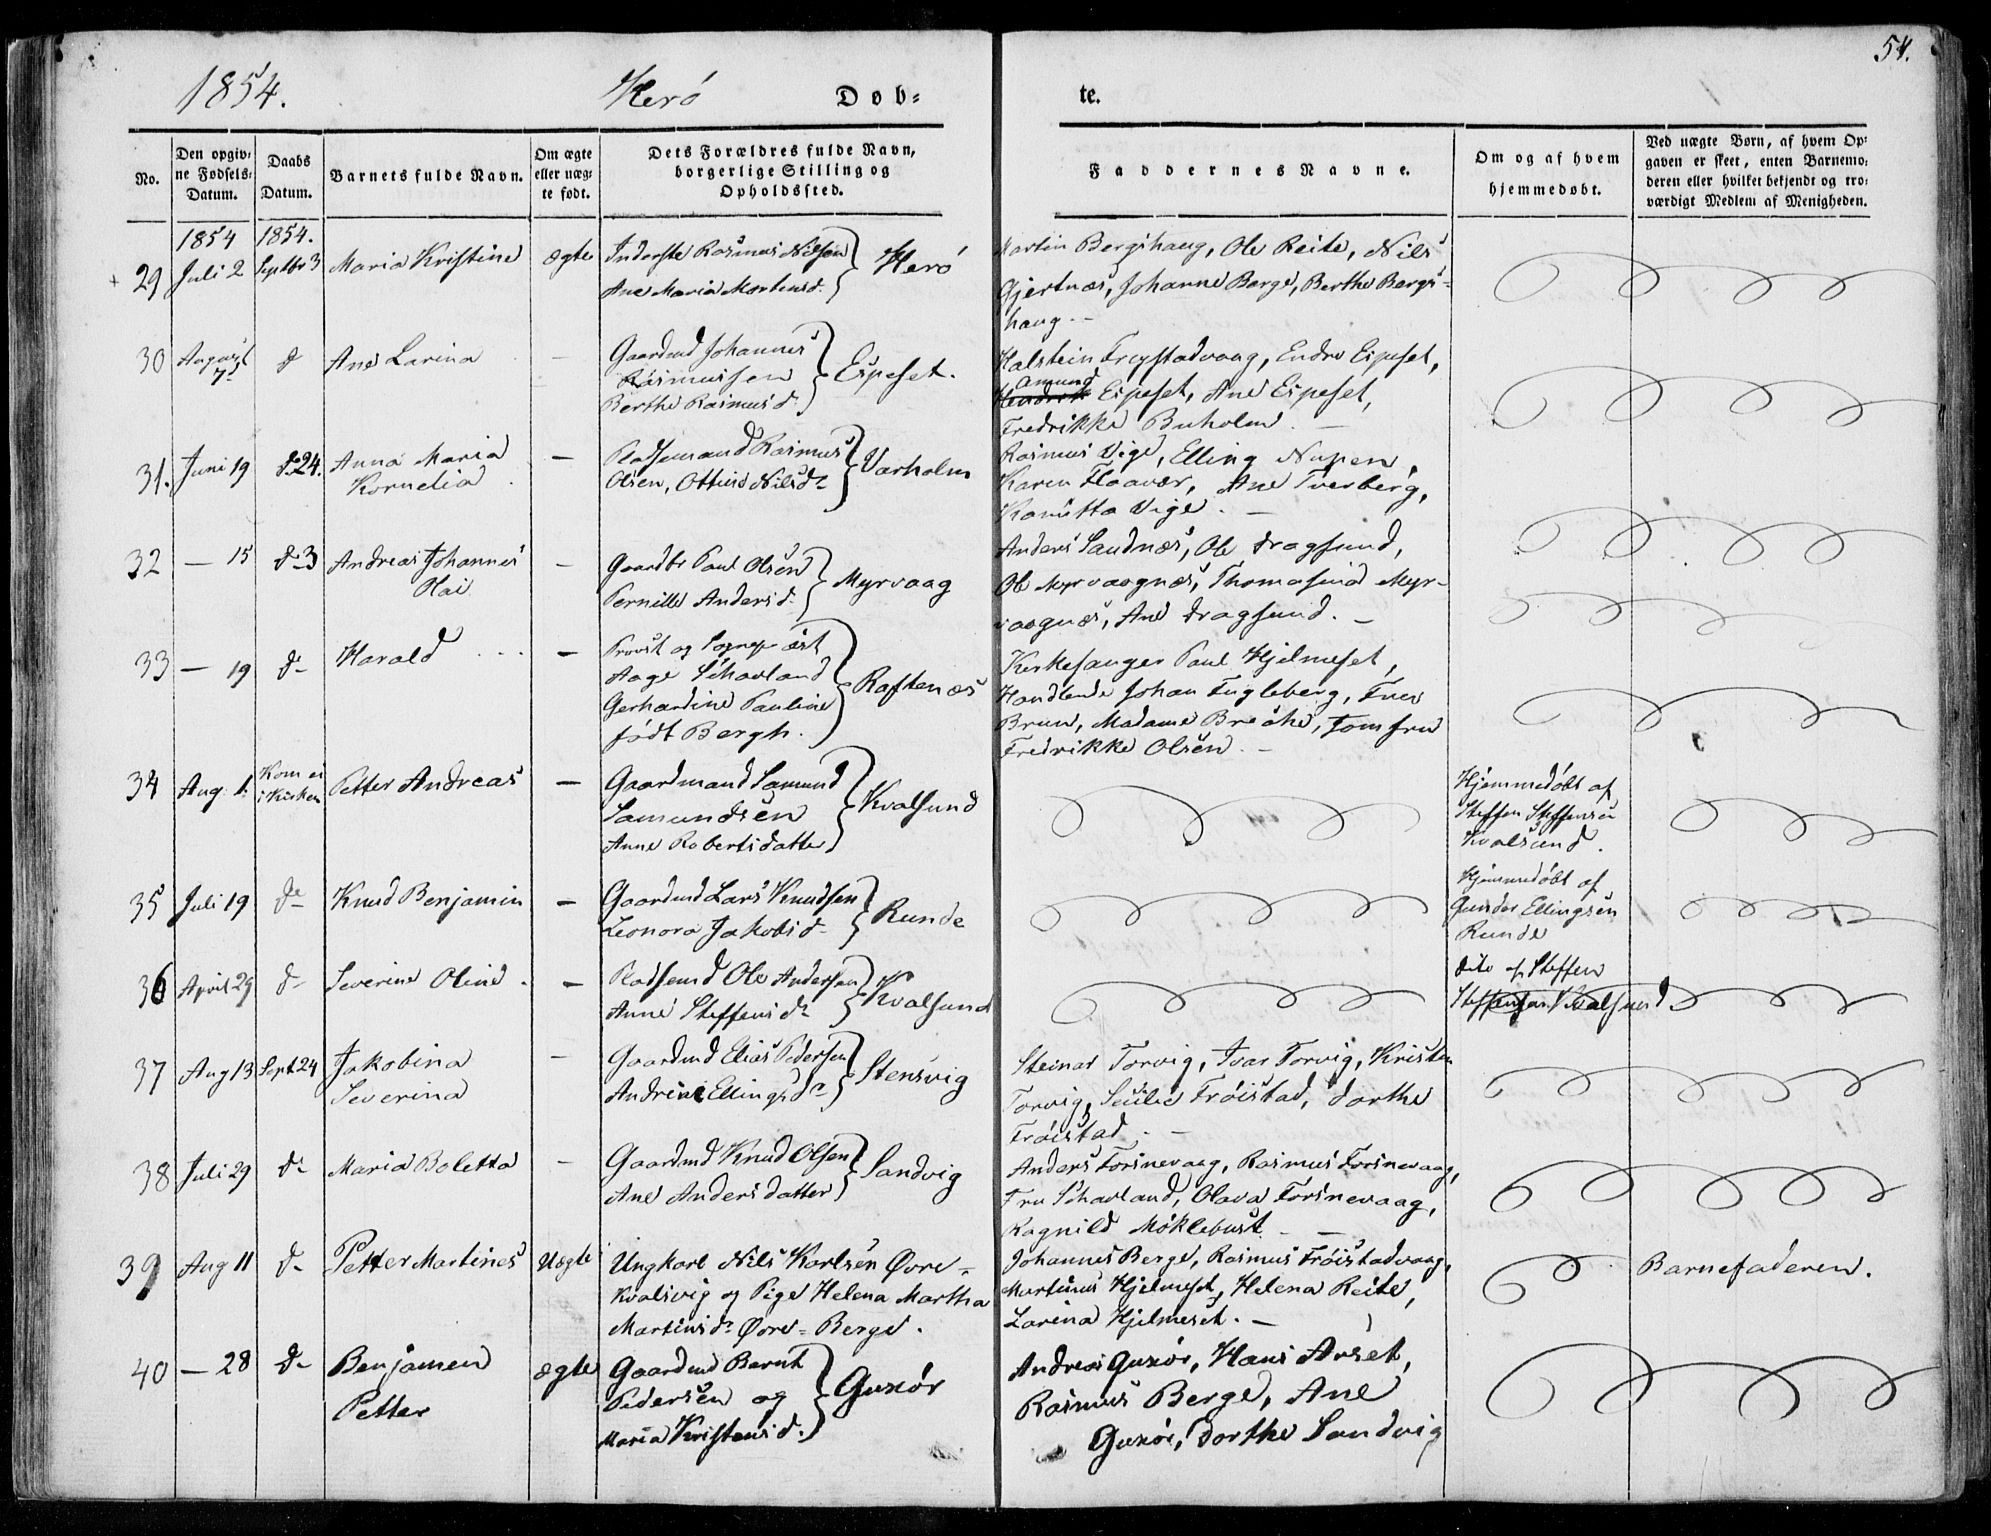 1854. Herö Døb= te. 54.
No.
Den opgiv=
ne Fødsels=
Datum.
Daabs
Datum.
Barnets fulde Navn.
Om ægte
eller uæg=
te født.
Dets Forældres fulde Navn,
borgerlige Stilling og
Opholdssted.
Faddernes Navne.
Om og af hvem
hjemmedøbt.
Ved uægte Børn, af hvem Op=
gaven er skeet, enten Barnemo=
deren eller hvilket bekjendt og tro=
værdigt Medlem af Menigheden.
1854 1854.
29 Juli 2 Septbr 3 Maria Kristine ægte
Inderste Rasmus Nilsen
Ane Maria Mortensd.
Herö
Martin Bergshaug, Ole Reite, Nils
Gjertnæs, Johanne Berge, Berthe Bergs=
haug.-
30 August 7 d Ane Larina -
Gaardmd Johannes
Rasmussen
Berthe Rasmusd.
Espeset.
Halstein Frøystadvaag, Endre Espeset,
Amund
Espeset, Ane Espeset,
Fredrikke Buholm. -
31. Juni 19 d. 24. Anna Maria
Kornelia -
Pladsemand Rasmus
Olsen, Ottine Nilsdr
Varholm
Rasmus Vige, Elling Nupen,
Karen Flaavær, Ane Tverberg,
Vige. -
32 - 15 d. 3 Andreas Johannes
Olai -
Gaardbr Paul Olsen
Pernille Andersd.
Myrvaag
Anders Sandnæs, Ole Dragsund,
Ole Myrvaagnæs, Thomasine Myr-
vaagnæs, Ane Dragsund. -
33 - 19 d- Harald ... -
Provst og Sognepræst
Aage Schavland
Gerhardine Pauline
født Bergh.
Raftenæs
Kirkesanger Paul Hjelmeset,
Handlende Johan Fugleberg, Frue
Brun, Madame, Jomfru
Fredrikke Olsen. -
34 Aug. 1. Kom ei
i Kirken Petter Andreas -
Gaardmand Samund
Samundsen
Anne Robertsdatter
Kvalsund
Hjemmedøbt af
Steffen Steffensen
Kvalsund.
35 Juli 19 d- Knud Benjamin -
Gaardmd Lars Knudsen
Leonora Jakobsd-
Runde
Hjemmedøbt af
Gunder Ellingsen
Runde
36 April 29 d- Severine Oline. -
Pladsemd Ole Andersen
Anne Steffensdr
Kvalsund
dito af Steffen
Steffensen Kvalsund
37 Aug 13 Sept 24 Jakobina
Severina -
Gaardmd Elias Pedersen
Andrine Ellingsdr
Stensvig
Steinar Torvig, Ivar Torvig, Kristen
Torvig, Frøistad, Dorthe
Frøistad. -
38 Juli 29 d- Maria Boletta -
Gaardmd Knud Olsen
Ane Andersdatter
Sandvig
Anders Torsnevaag, Rasmus Torsnevaag,
Fru Schavland, Olava Torsnevaag,
Ragnild Møklebust. -
39 Aug 11 d- Petter Martines Uægte
Ungkarl Nils Karlsen Øvre-
Kvalsvig og Pige Helena Martha
Martinsdr Øvre-Berge.
Johannes Berge, Rasmus Frøistadvaag,
Martinus Hjelmeset, Helena Reite,
Larina Hjelmeset. -
Barnefaderen.
40 - 28 d- Benjamen
Petter ægte
Gaardmd Bernt
Pedersen og
Maria Kristensd.
Gurør
Andreas Gurør, Hans Arset,
Rasmus Berge, Ane
Gurør, Dorthe Sandvig